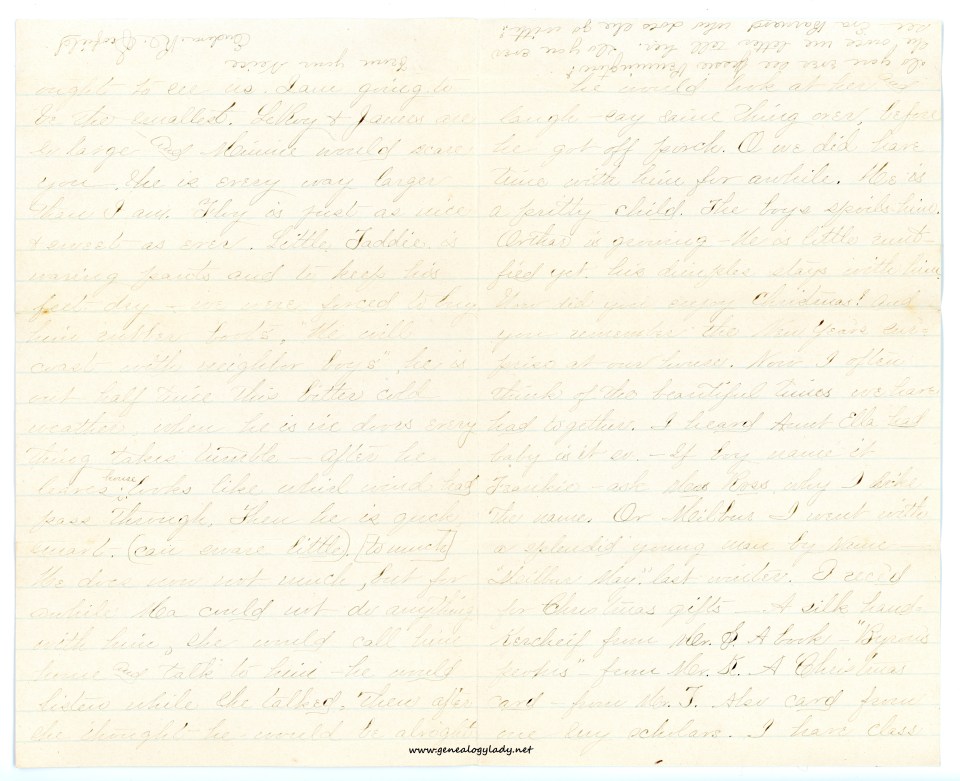 ought to see us. I am going to
be the smallest. LeRoy & James are
so large and Maurice would scare
you. She is every way larger
than I am. Floy is just as nice
& sweet as ever. Little Taddie is
waring pants and to keep his
feet dry - we were forced to buy
him rubber boots. He will
coast with neighbor boys" he is
out half time this bitter cold
weather, when he is in doors every
thing takes tumble - after he
leaves house looks like whirl wind had
pass through. Then he is quick
smart. (can sware little) [to much]
He does now not much, but for
awhile Ma could not do anything
with him, she would call him
home and talk to him - he would
listen while she talked. Then after
she thought he would be alright
he would look at her and
laugh - say same thing over, before
he got off porch. O we did have
time with him for awhile. He is
a pretty child. The boys spoils him.
is growing - He is little
yet. his dimples stays with him.
How did you enjoy Christmas? and
you remember the New Years sur-
prise at our house. Now I often
think of the beautiful times we have
had together. I heard Aunt Ella had
baby is it so. - If boy name it
Frankie - ask Mrs Ross why I like
the name. Or Wilbur I went with
a splendid young man by name
"Wilbur May". last winter. I reced
for Christmas gifts - A silk hand-
kercheif from Mr. G. A book - "Byron's
works" - from Mr. K. A Christmas
card - from Mr. T. Also card from
one my scholars. I have class
Do you ever see Jessie Pennington?
who does she go with?
From your Neice
www.genealogylady.net